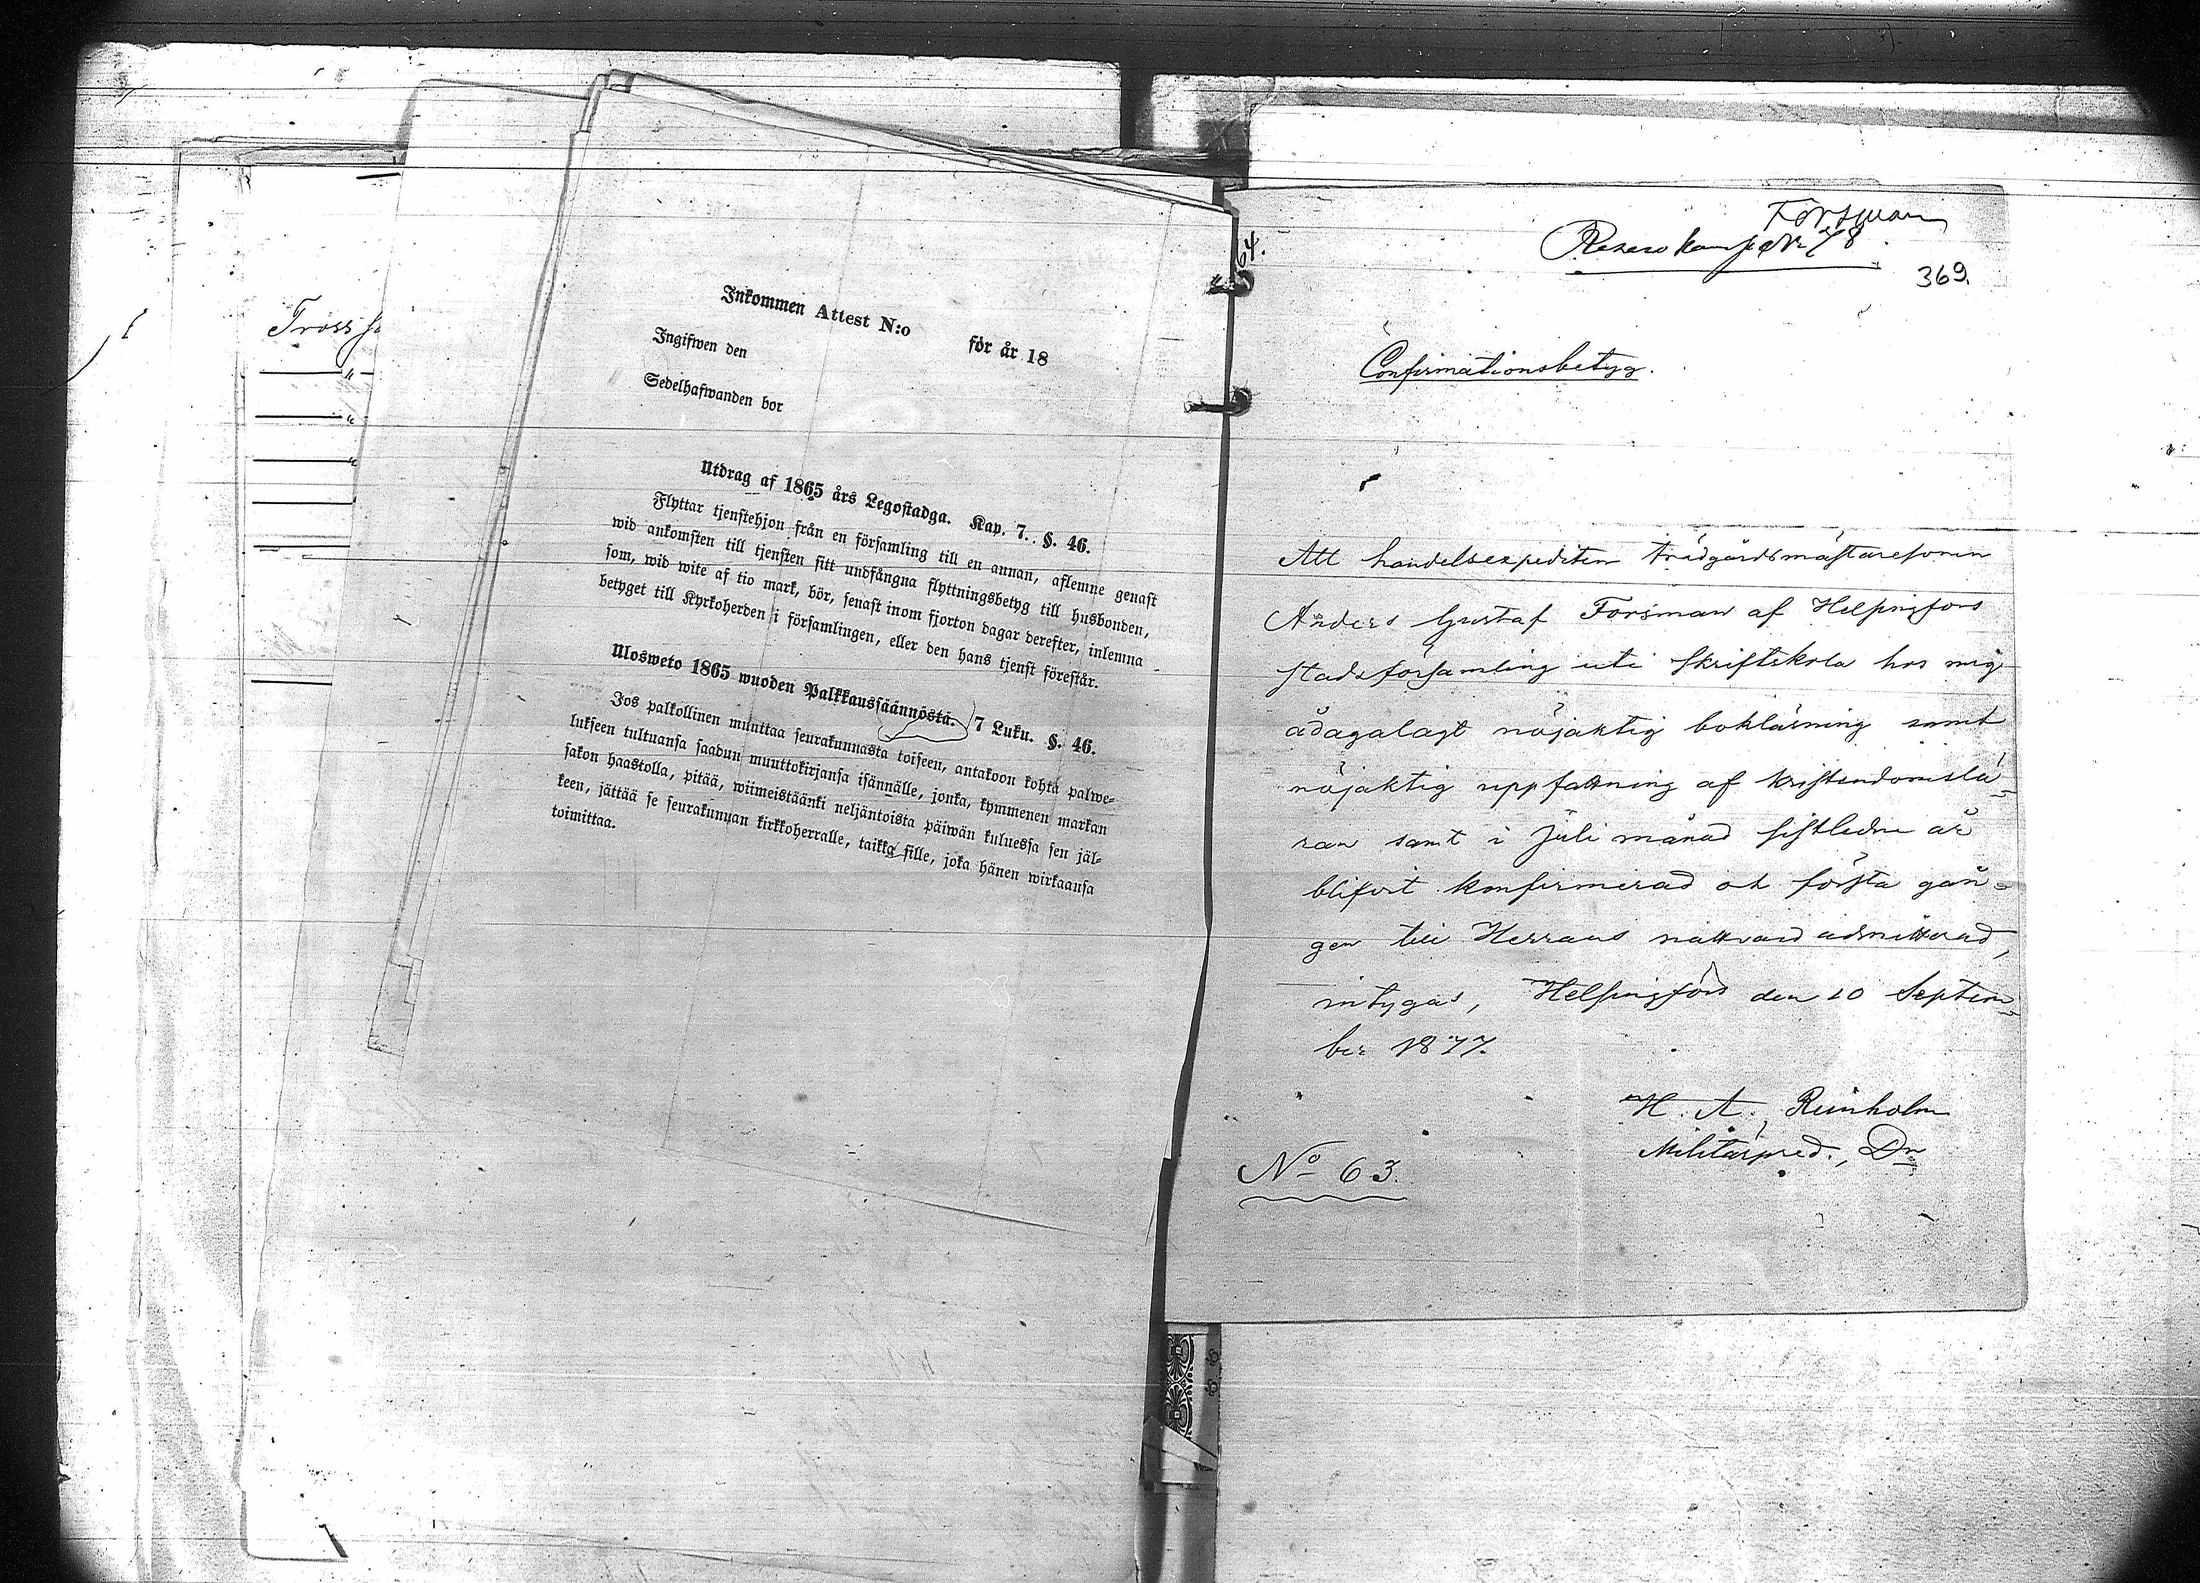 Tross
Inkommen Attest N:o för år 18
Ingifwen den
Sedelhafwanden bor
Utdrag af 1865 års Legostadga. Kap. 7. §. 46.
Flyttar tjenstehjon från en församling till en annan, aflemne genast
wid ankomsten till tjensten sitt undfångna flyttningsbetyg till husbonden,
som, wid wite af tio mark, bör, senast inom fjorton dagar derefter, inlemna
betyget till Kyrkoherden i församlingen, eller den hans tjenst förestår.
Ulosweto 1865 wuoden Palkkaussäännöstä. 7 Luku. §. 46.
Jos palkollinen muuttaa seurakunnasta toiseen, antakoon kohta palwe-
lukseen tultuansa saadun muuttokirjansa isännälle, jonka, kymmenen markan
sakon haastolla, pitää, wiimeistäänki neljäntoista päiwän kuluessa sen jäl-
keen, jättää se seurakunnan kirkkoherralle, taikka sille, joka hänen wirkaansa
toimittaa.
64.
Forsman
Reserv komp. № 78
369.
Confirmationsbetyg.
Att handelsexpediten trädgårdsmästaresonen
Anders Gustaf Forsman af Helsingfors
stadsförsamling uti skriftskola hos mig
ådagalagt nöjaktig bokläsning samt
nöjaktig uppfattning af kristendomslä-
ran samt i Juli månad sistledne år
blifvit konfirmerad och första gån-
gen till Herrans nattvard admitterad,
intygas, Helsingfors den 10 Septem-
ber 1877.
H. A. Reinholm
Militärpred., Dr
№ 63.